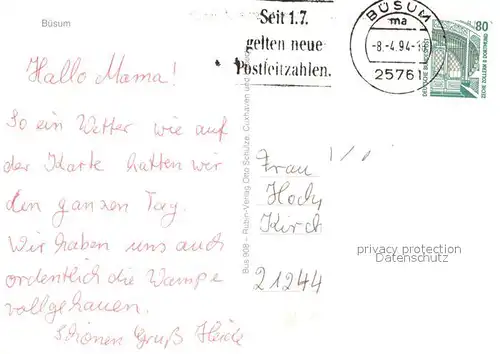 Büsum
Seit 1.7.
gelten neue
Postleitzahlen.
BÜSUM
ma
-8.-4.94-
25761
80
DEUTSCHE BUNDESPOST
ZECHE ZOLLERN II DORTMUND
Hallo Mama!
So ein Wetter wie auf
der Karte hatten wir
den ganzen Tag.
Wir haben uns auch
ordentlich die Wampe
vollgehauen.
Schönen Gruß Heide
Büs 908 - Rubin-Verlag Otto Schulze, Cuxhaven und
Frau
Hoch
Kirch
21244
privacy protection
Datenschutz